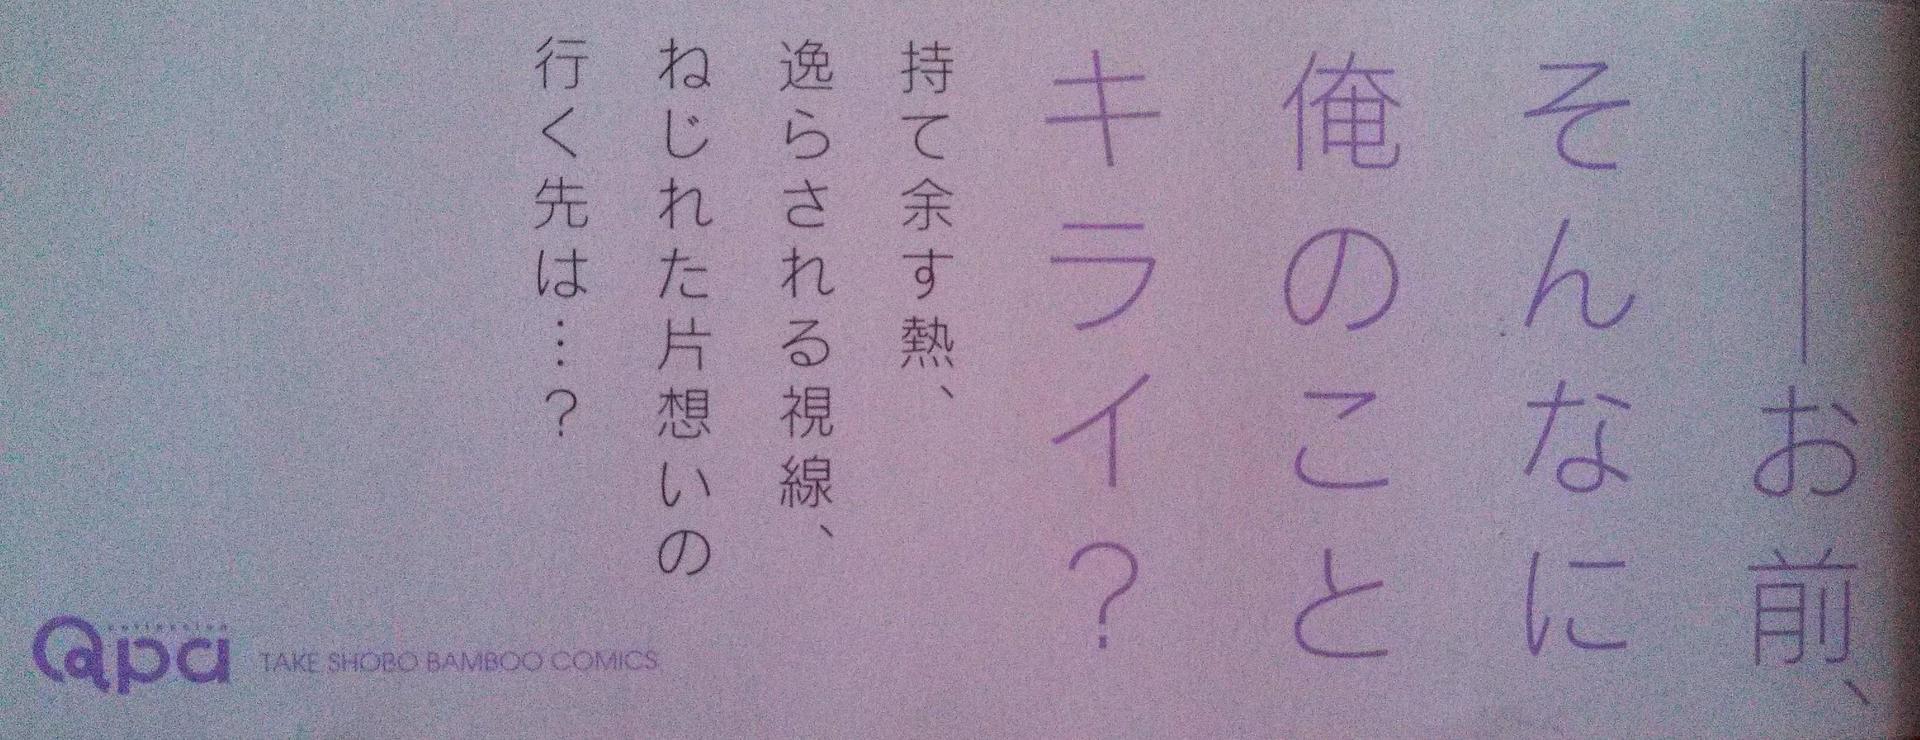 ――お前、
そんなに
俺のこと
キライ？
持て余す熱、
逸らされる視線、
ねじれた片想いの
行く先は…？
Qpa collection
TAKE SHOBO BAMBOO COMICS